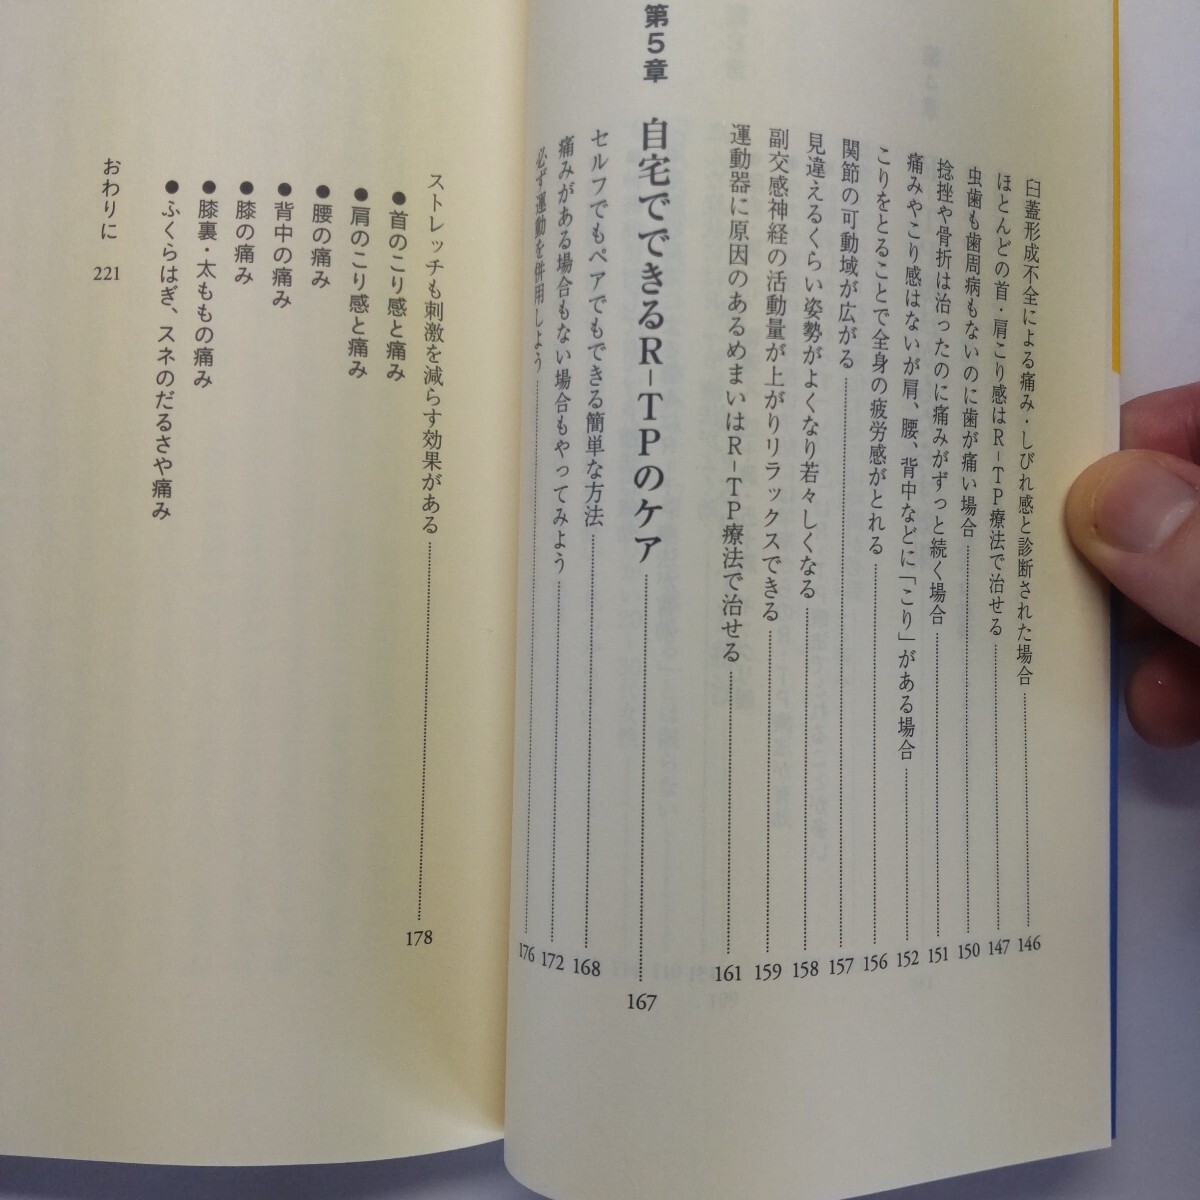 臼蓋形成不全による痛み・しびれ感と診断された場合 146
ほとんどの首・肩こり感はR-TP療法で治せる 147
虫歯も歯周病もないのに歯が痛い場合 150
捻挫や骨折は治ったのに痛みがずっと続く場合 151
痛みやこり感はないが肩、腰、背中などに「こり」がある場合 152
こりをとることで全身の疲労感がとれる 156
関節の可動域が広がる 157
見違えるくらい姿勢がよくなり若々しくなる 158
副交感神経の活動量が上がりリラックスできる 159
運動器に原因のあるめまいはR-TP療法で治せる 161
第5章 自宅でできるR-TPのケア 167
セルフでもペアでもできる簡単な方法 168
痛みがある場合もない場合もやってみよう 172
必ず運動を併用しよう 176
ストレッチも刺激を減らす効果がある 178
●首のこり感と痛み
●肩のこり感と痛み
●腰の痛み
●背中の痛み
●膝の痛み
●膝裏・太ももの痛み
●ふくらはぎ、スネのだるさや痛み
おわりに 221